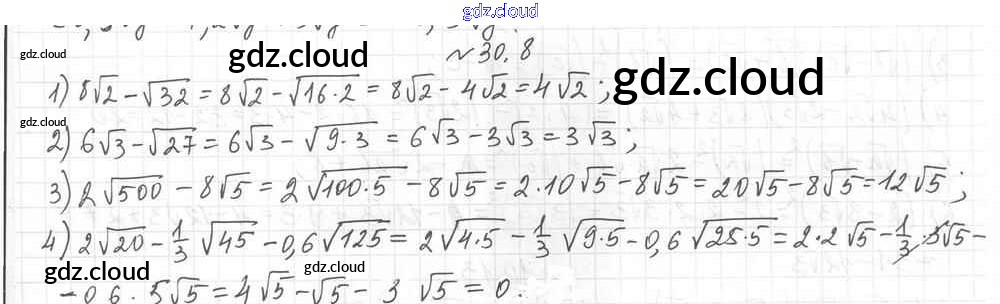 gdz.cloud
№30.8
gdz.cloud gdz.cloud gdz.cloud
1) 8√2 - √32 = 8√2 - √(16·2) = 8√2 - 4√2 = 4√2 ;
gdz.cloud
2) 6√3 - √27 = 6√3 - √(9·3) = 6√3 - 3√3 = 3√3 ;
3) 2√500 - 8√5 = 2√(100·5) - 8√5 = 2·10√5 - 8√5 = 20√5 - 8√5 = 12√5 ;
4) 2√20 - 1/3 √45 - 0,6√125 = 2√(4·5) - 1/3 √(9·5) - 0,6√(25·5) = 2·2√5 - 1/3·3√5 -
gdz.cloud gdz.cloud
- 0,6·5√5 = 4√5 - √5 - 3√5 = 0.